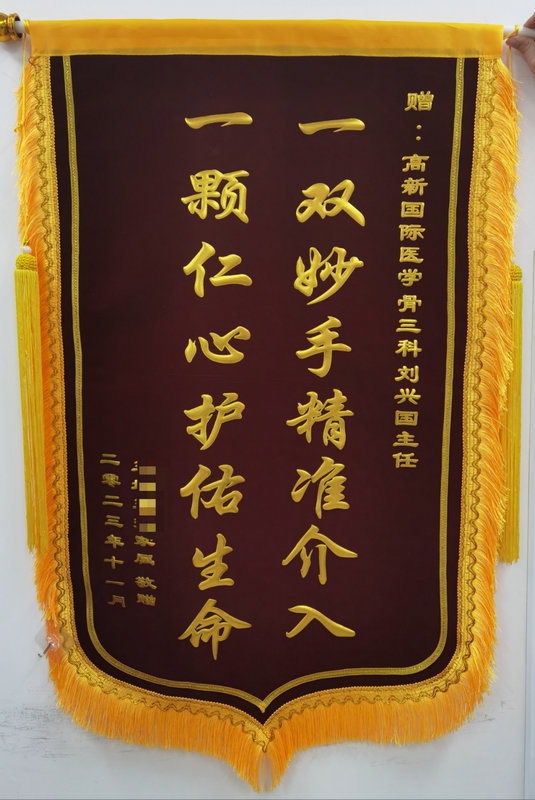 赠：高新国际医学骨三科刘兴国主任
一双妙手精准介入
一颗仁心护佑生命
家属 敬赠
二零二三年十一月